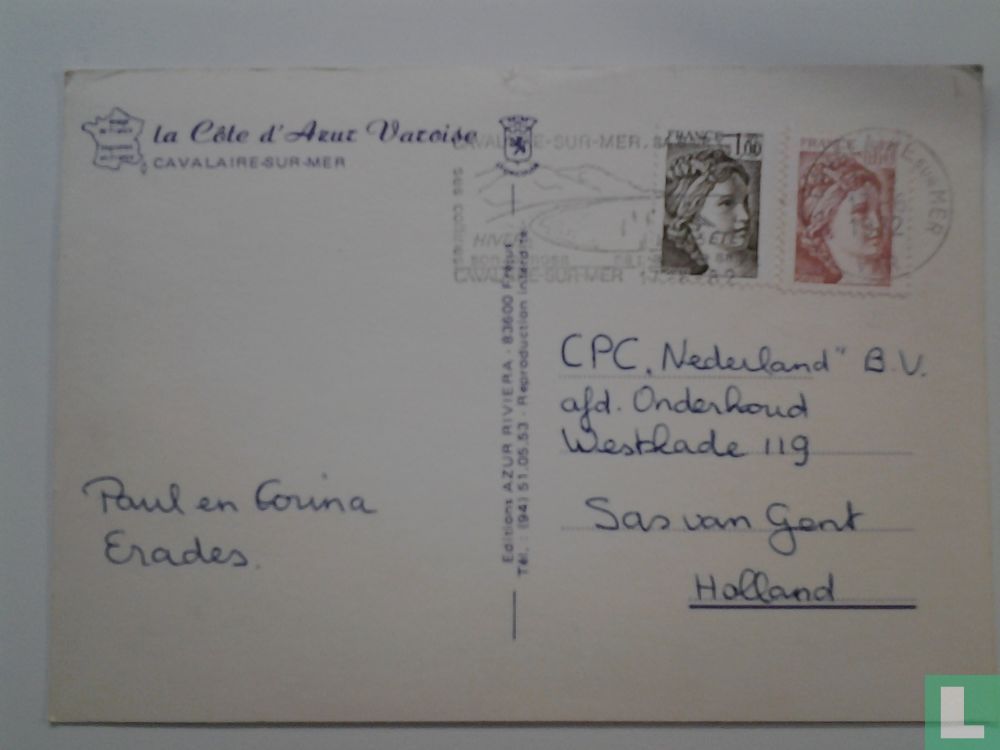 la Côte d'Azur Varoise
CAVALAIRE-SUR-MER
CAVALAIRE-SUR-MER
HIVER
CAVALAIRE-SUR-MER
FRANCE 1,00
FRANCE
SUR MER
Editions AZUR RIVIERA - 83600 Fréjus
Tél. : (94) 51.05.53 - Reproduction interdite
CPC „Nederland" B.V.
afd. Onderhoud
Westkade 119
Sas van Gent
Holland
Paul en Corina
Erades.
L